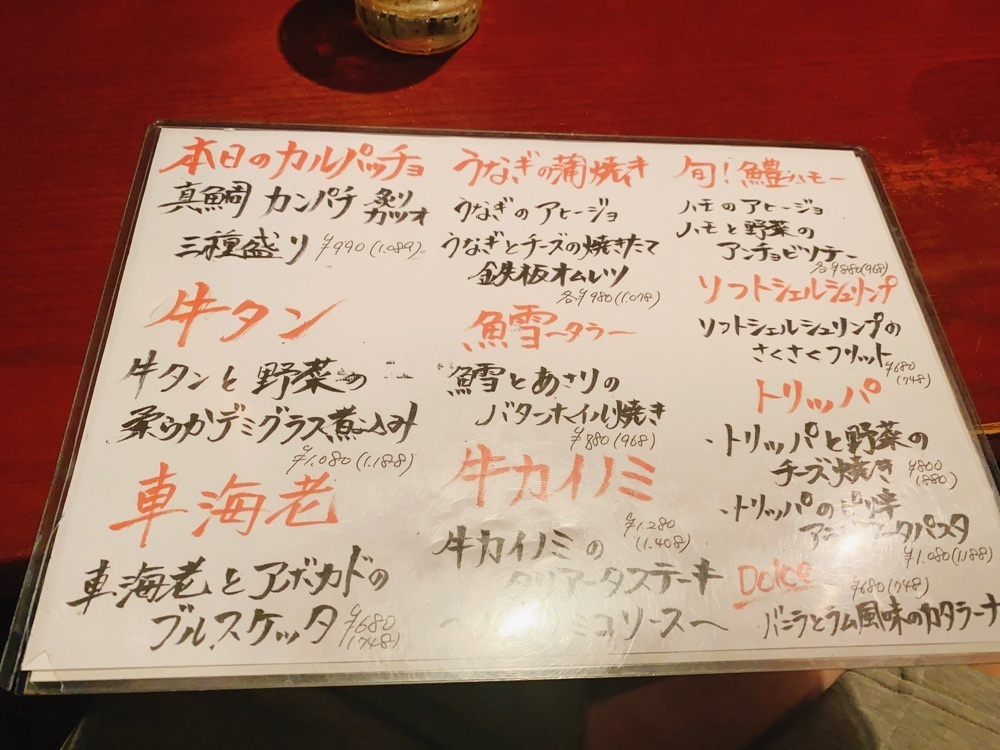 本日のカルパッチョ
真鯛 カンパチ 炙りカツオ
三種盛り ¥990(1.089)
牛タン
牛タンと野菜の
柔らかデミグラス煮込み
¥1.080(1.188)
車海老
車海老とアボカドの
ブルスケッタ ¥680
(748)
うなぎの蒲焼き
うなぎのアヒージョ
うなぎとチーズの焼きたて
鉄板オムレツ
各¥980(1.078)
鱈ータラー
鱈とあさりの
バターホイル焼き
¥880(968)
牛カイノミ
¥1.280
(1.408)
牛カイノミの
タリアータステーキ
ソース〜
旬!鱧ーハモー
ハモのアヒージョ
ハモと野菜の
アンチョビソテー
各¥880(968)
ソフトシェルシュリンプ
ソフトシェルシュリンプの
さくさくフリット ¥680
(748)
トリッパ
・トリッパと野菜の
チーズ焼き ¥800
(880)
・トリッパのピリ辛
アラビアータパスタ
¥1.080(1.188)
Dolce ¥680(748)
バニラとラム風味のカタラーナ